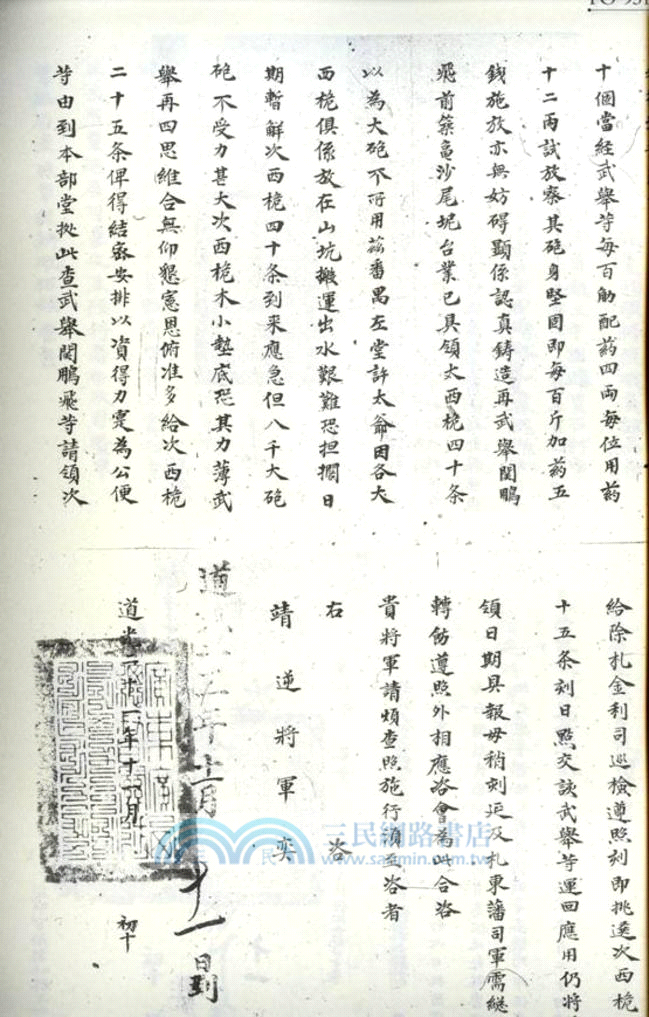 FO 931
十個當經武舉等每百觔配葯四兩每位用葯
十二兩試放察其砲身堅固即每百斤加葯五
錢施放亦無妨碍顯係認真鋳造再武舉関鵬
飛前築龜沙尾坭台業已具領大西桅四十条
以為大砲不所用茲番禺左堂許太爺因各大
西桅俱係放在山坑搬運出水艱難恐担擱日
期暫觧次西桅四十条到来應急但八千大砲
砲不受力甚大次西桅木小墊底恐其力薄武
舉再四思維合無仰懇憲恩俯准多給次西桅
二十五条俾得結密安排以資得力寔為公便
等由到本部堂拠此查武舉関鵬飛等請領次
給除札金利司巡檢遵照刻即挑選次西桅
十五条刻日照交該武舉等運回應用仍將
領日期具報毋稍刻延及札東藩司軍需総
轉飭遵照外相應咨會為此合咨
貴將軍請煩查照施行須至咨者
右 咨
靖逆將軍奕
道 年十一月十一日到
道光 十一年十一月 初十
三民網路書店
www.sanmin.com.tw